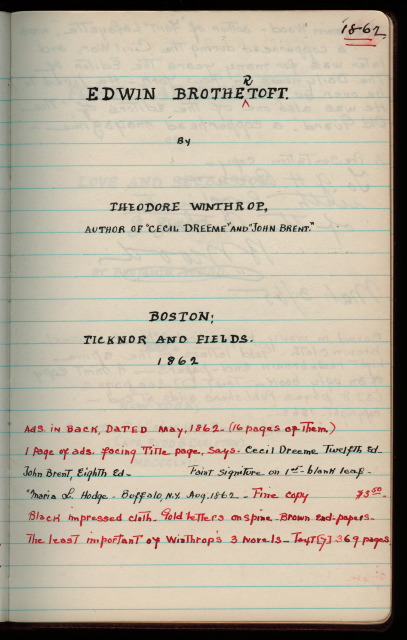 1862
R
EDWIN BROTHETOFT.
^
By
THEODORE WINTHROP,
AUTHOR OF "CECIL DREEME" AND "JOHN BRENT."
BOSTON:
TICKNOR AND FIELDS.
1862
Ads. in BACK, DATED May, 1862 - (16 pages of Them.)
1 Page of ads. facing Title page, says - Cecil Dreeme Twelfth Ed -
John Brent, Eighth Ed - Faint signiture on 1st - blank leaf -
"Maria L. Hodge - Buffalo, N.Y. Aug. 1862 - Fine copy $3.50 -
Black impressed cloth. Gold letters on spine - Brown end-papers -
The least important of Winthrop's 3 novels - Text [5] - 369 pages